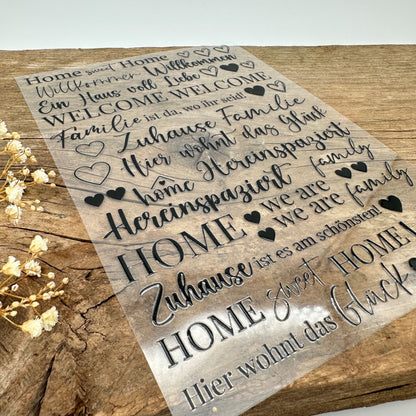 Home sweet Home
Willkommen Willkommen
Ein Haus voll Liebe
WELCOME WELCOME
Familie ist da, wo ihr seid
Zuhause Familie
Hier wohnt das Glück
home Hereinspaziert
Hereinspaziert family
HOME we are
we are family
Zuhause ist es am schönsten!
HOME sweet HOME!
Hier wohnt das Glück